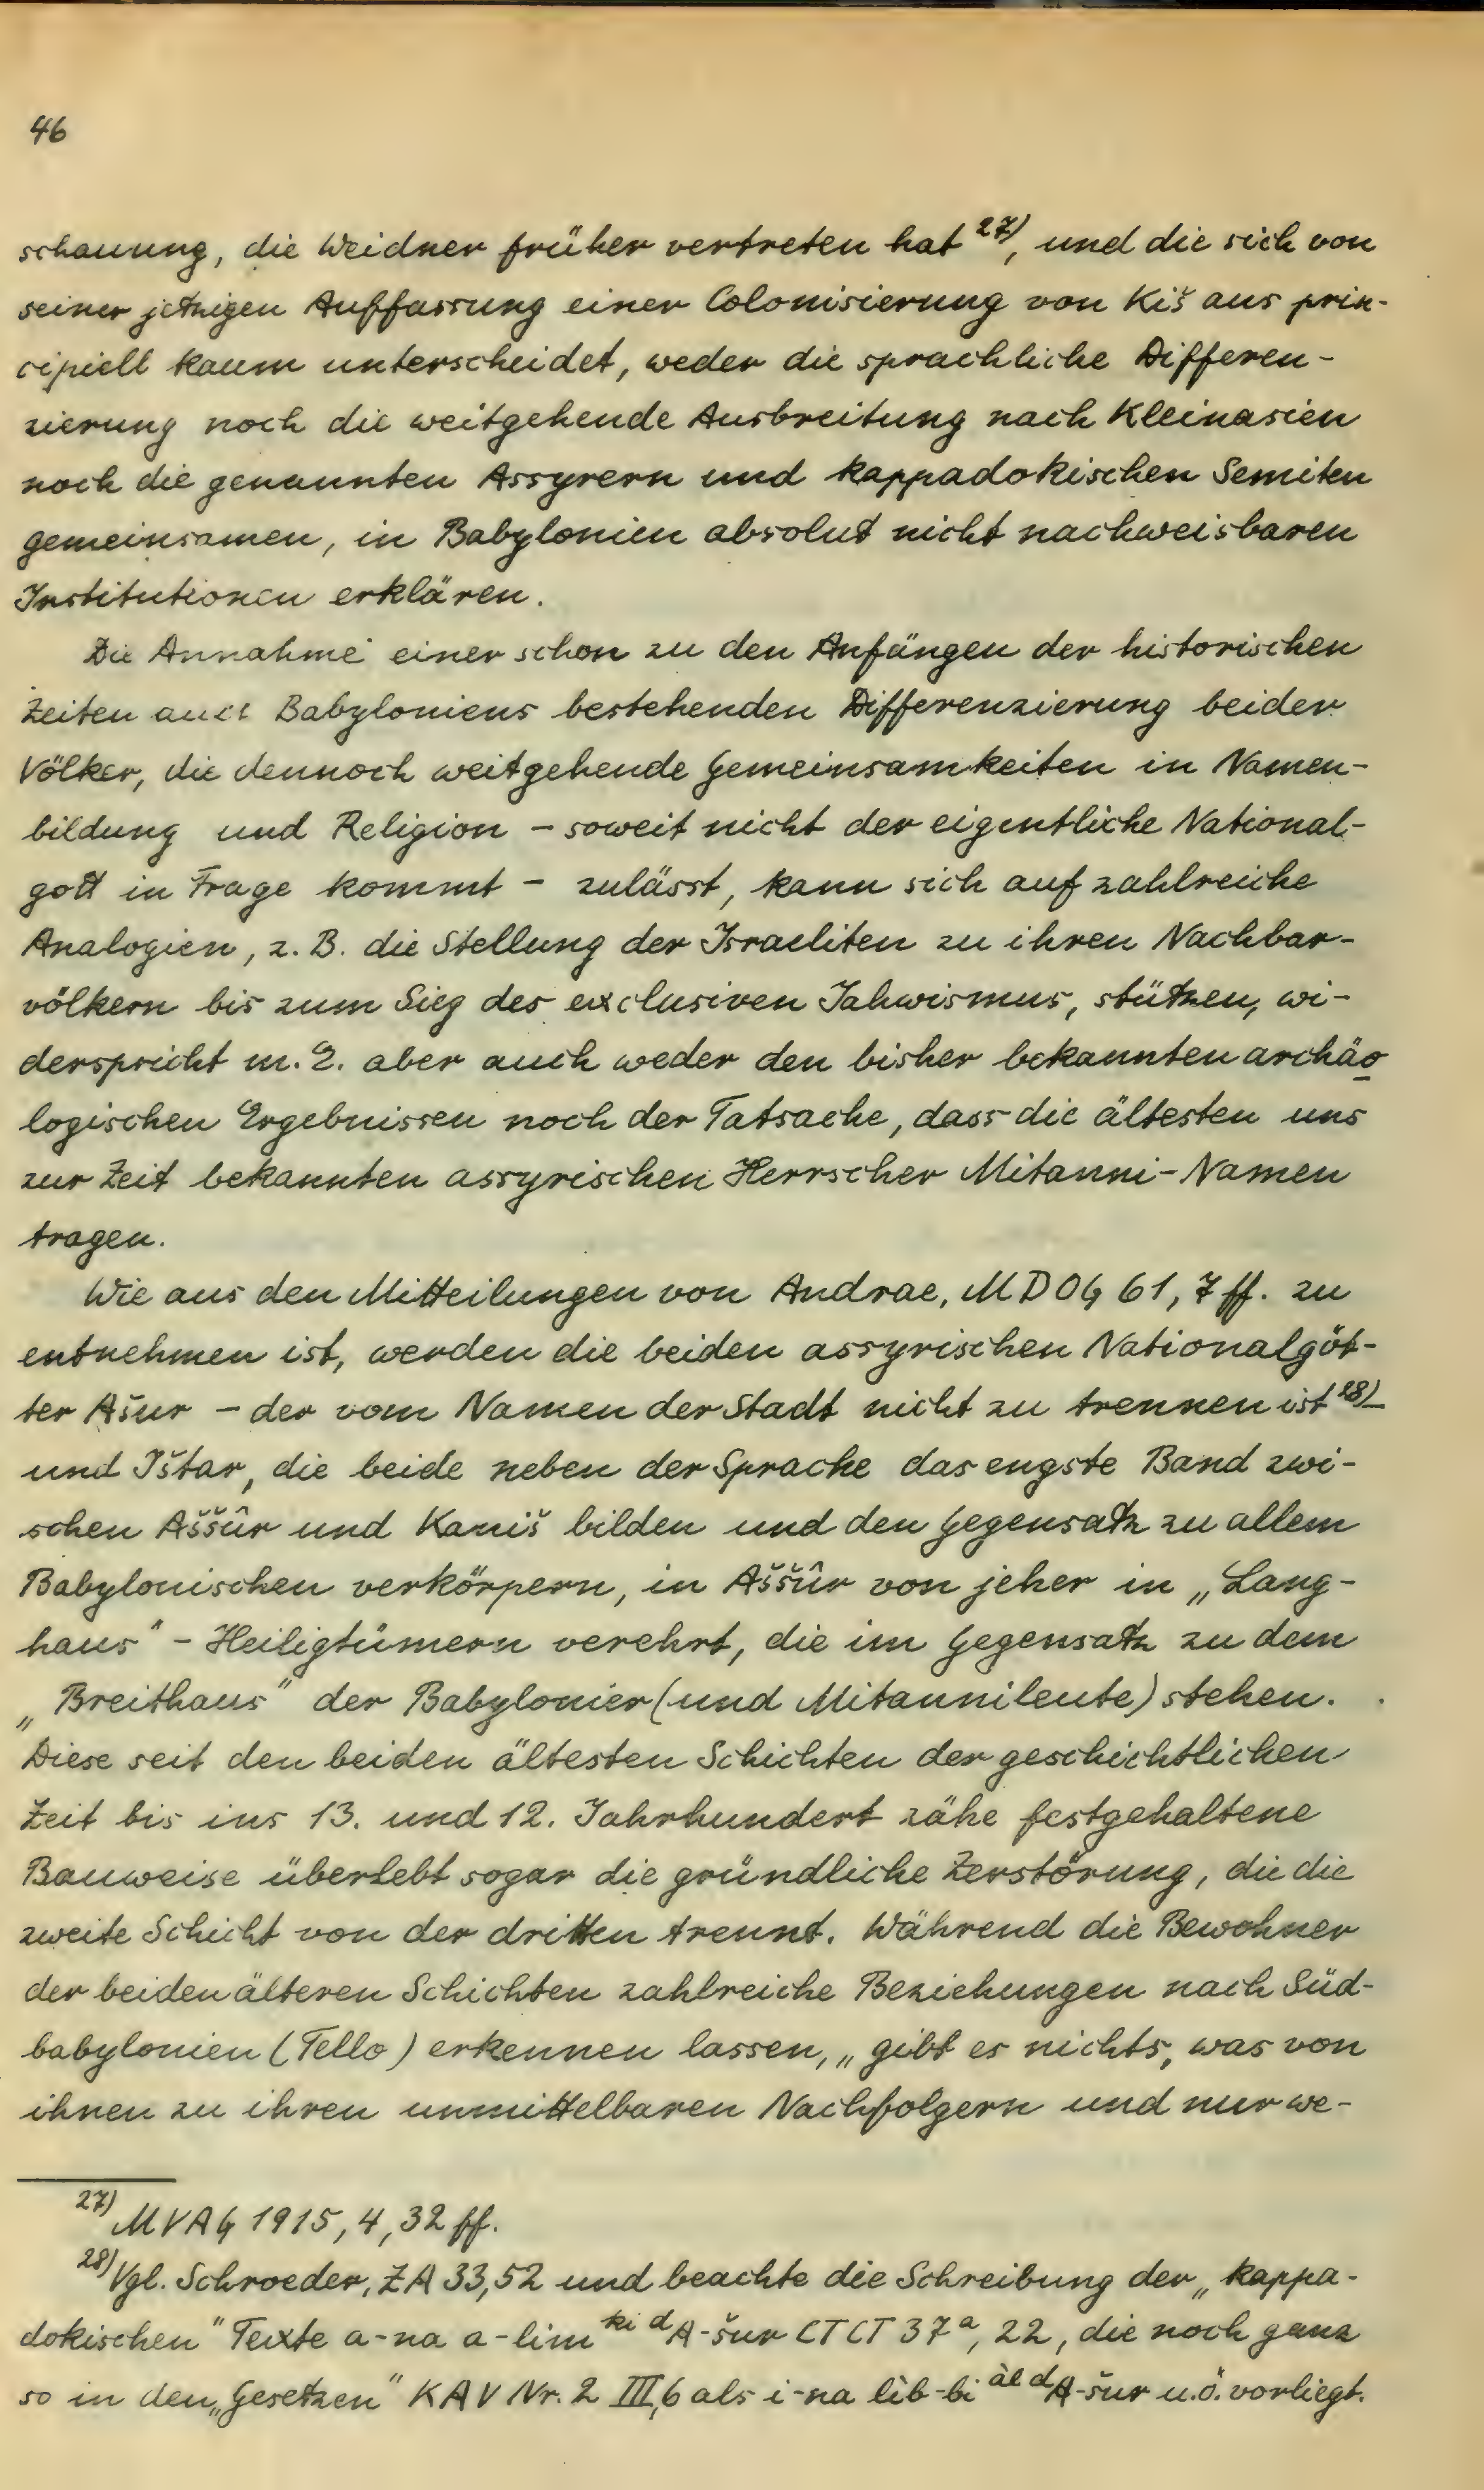 46
schauung, die Weidner früher vertreten hat 27), und die sich von
seiner jetzigen Auffassung einer Colonisierung von Kiš aus prin-
cipiell kaum unterscheidet, weder die sprachliche Differen-
zierung noch die weitgehende Ausbreitung nach Kleinasien
noch die genannten Assyrern und kappadokischen Semiten
gemeinsamen, in Babylonien absolut nicht nachweisbaren
Institutionen erklären.
Die Annahme einer schon zu den Anfängen der historischen
Zeiten auch Babyloniens bestehenden Differenzierung beider
Völker, die dennoch weitgehende Gemeinsamkeiten in Namen-
bildung und Religion – soweit nicht der eigentliche National-
gott in Frage kommt – zulässt, kann sich auf zahlreiche
Analogien, z. B. die Stellung der Israeliten zu ihren Nachbar-
völkern bis zum Sieg des exclusiven Jahwismus, stützen, wi-
derspricht m. E. aber auch weder den bisher bekannten archäo
logischen Ergebnissen noch der Tatsache, dass die ältesten uns
zur Zeit bekannten assyrischen Herrscher Mitanni-Namen
tragen.
Wie aus den Mitteilungen von Andrae, MDOG 61, 7 ff. zu
entnehmen ist, werden die beiden assyrischen Nationalgöt-
ter Ašur – der vom Namen der Stadt nicht zu trennen ist 28) –
und Ištar, die beide neben der Sprache das engste Band zwi-
schen Aššûr und Kaniš bilden und den Gegensatz zu allem
Babylonischen verkörpern, in Aššûr von jeher in „Lang-
haus" - Heiligtümern verehrt, die im Gegensatz zu dem
„Breithaus" der Babylonier (und Mitannileute) stehen.
Diese seit den beiden ältesten Schichten der geschichtlichen
Zeit bis ins 13. und 12. Jahrhundert zähe festgehaltene
Bauweise überlebt sogar die gründliche Zerstörung, die die
zweite Schicht von der dritten trennt. Während die Bewohner
der beiden älteren Schichten zahlreiche Beziehungen nach Süd-
babylonien (Tello) erkennen lassen, „gibt es nichts, was von
ihnen zu ihren unmittelbaren Nachfolgern und nur we-
27) MVAG 1915, 4, 32 ff.
28) Vgl. Schroeder, ZA 33,52 und beachte die Schreibung der „kappa-
dokischen" Texte a-na a-lim ki d A-šur CTCT 37a, 22, die noch ganz
so in den „Gesetzen" KAV Nr. 2 III,6 als i-na lìb-bi âl d A-šur u.ö. vorliegt.